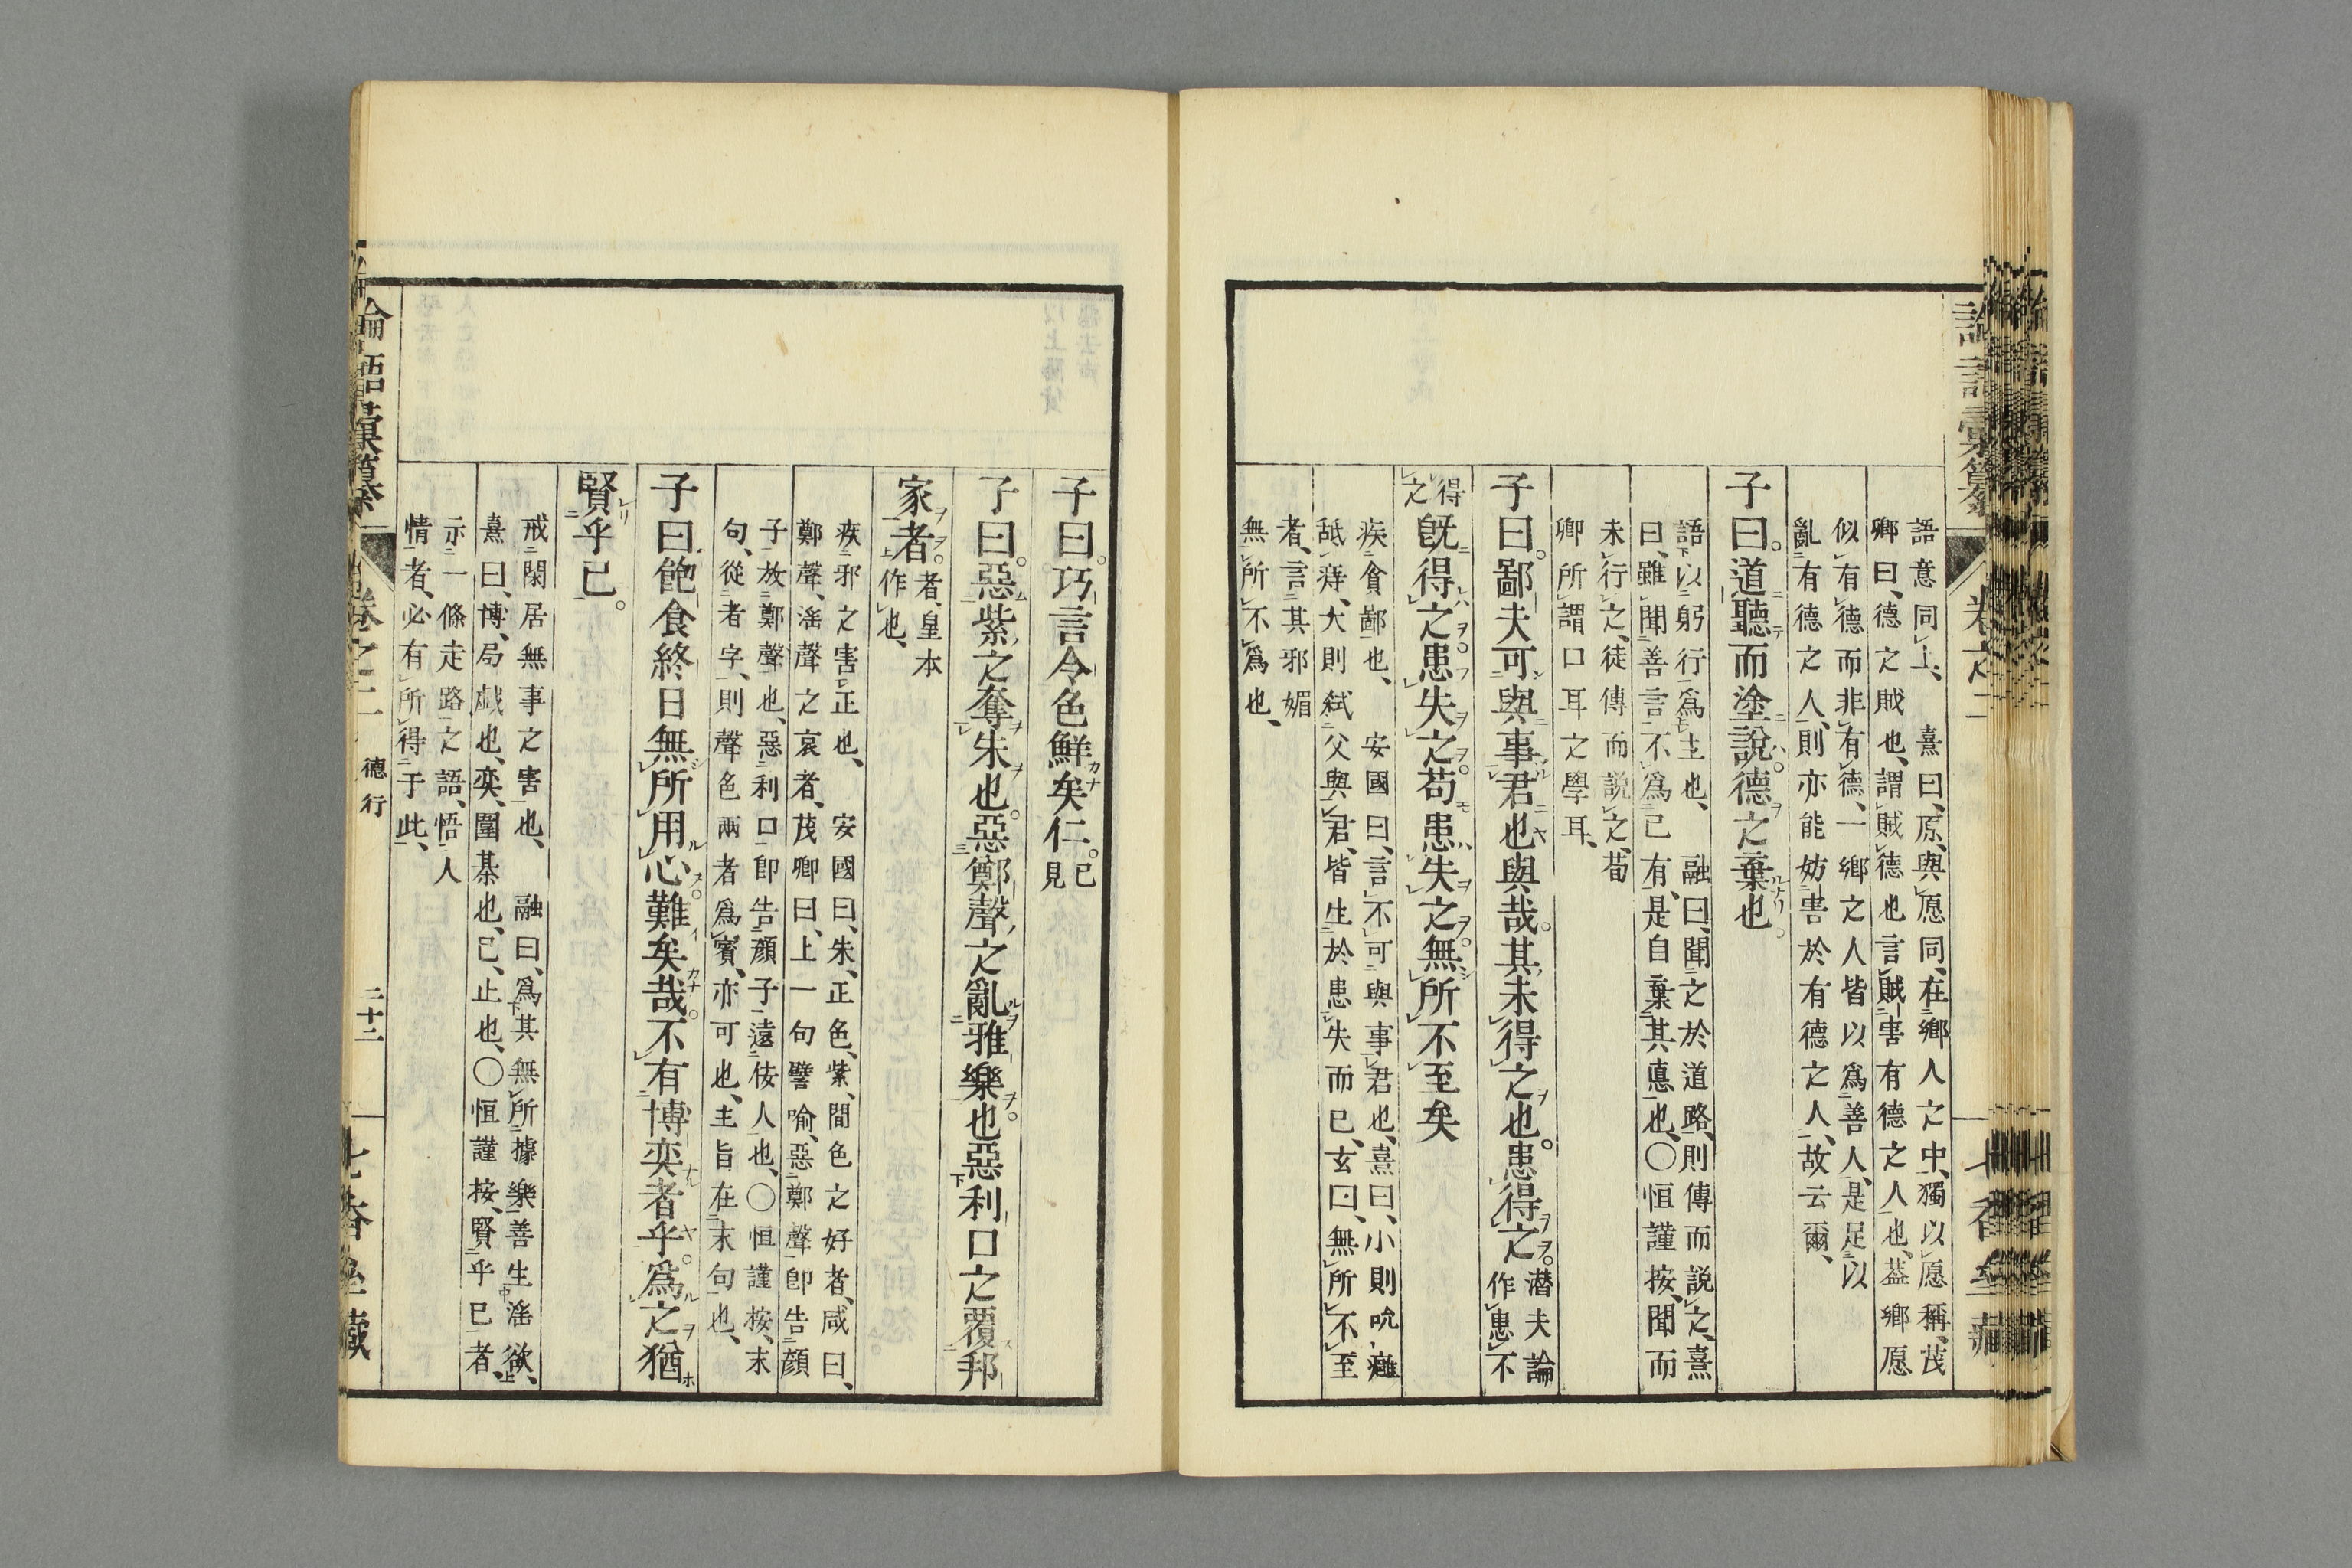 語意同上、　熹曰、原與愿同、在鄉人之中、獨以愿稱、茂
卿曰、德之賊也、謂賊德也言賊害有德之人也、葢鄉愿
似有德而非有德、一鄉之人皆以爲善人、是足以
亂有德之人、則亦能妨害於有德之人、故云爾、
子曰。道聽而塗說德之棄也。
語以躬行爲主也、　融曰、聞之於道路、則傳而說之、熹
曰、雖聞善言不爲己有、是自棄其悳也、〇恒謹按、聞而
未行之、徒傳而說之、荀
卿所謂口耳之學耳、
子曰。鄙夫可與事君也與哉。其未得之也。患得之。潛夫論作患不
得之旣得之。患失之。苟患失之。無所不至矣
疾貪鄙也、　安國曰、言不可與事君也、熹曰、小則吮癰
舐痔、大則弑父與君、皆生於患失而已、玄曰、無所不至
者、言其邪媚
無所不爲也、
子曰。巧言令色鮮矣仁。已見
子曰。惡紫之奪朱也。惡鄭聲之亂雅樂也。惡利口之覆邦
家者。者、皇本作也、
疾邪之害正也、　安國曰、朱、正色、紫、間色之好者、咸曰、
鄭聲、淫聲之哀者、茂卿曰、上一句譬喻、惡鄭聲卽告顏
子放鄭聲也、惡利口卽告顏子遠佞人也、〇恒謹按、末
句、從者字、則聲色兩者爲賓、亦可也、主旨在末句也、
子曰。飽食終日無所用心。難矣哉。不有博奕者乎。爲之猶
賢乎已。
戒閑居無事之害也、　融曰、爲其無所據樂善生淫欲、
熹曰、博、局戲也、奕、圍棊也、已、止也、〇恒謹按、賢乎已者、
示一條走路之語、悟人
情者、必有所得于此、
論語彙纂　卷之二　德行　二十二　七香齋藏